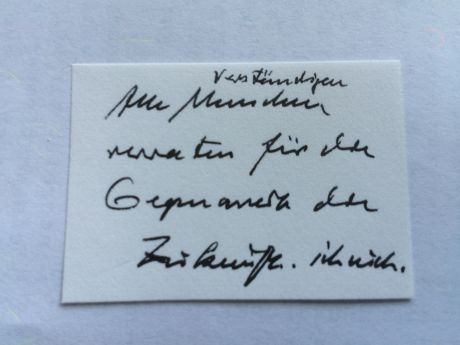 verständigen
Alle Menschen
verraten für die
Gegenwart die
Zukunft. ich nich.